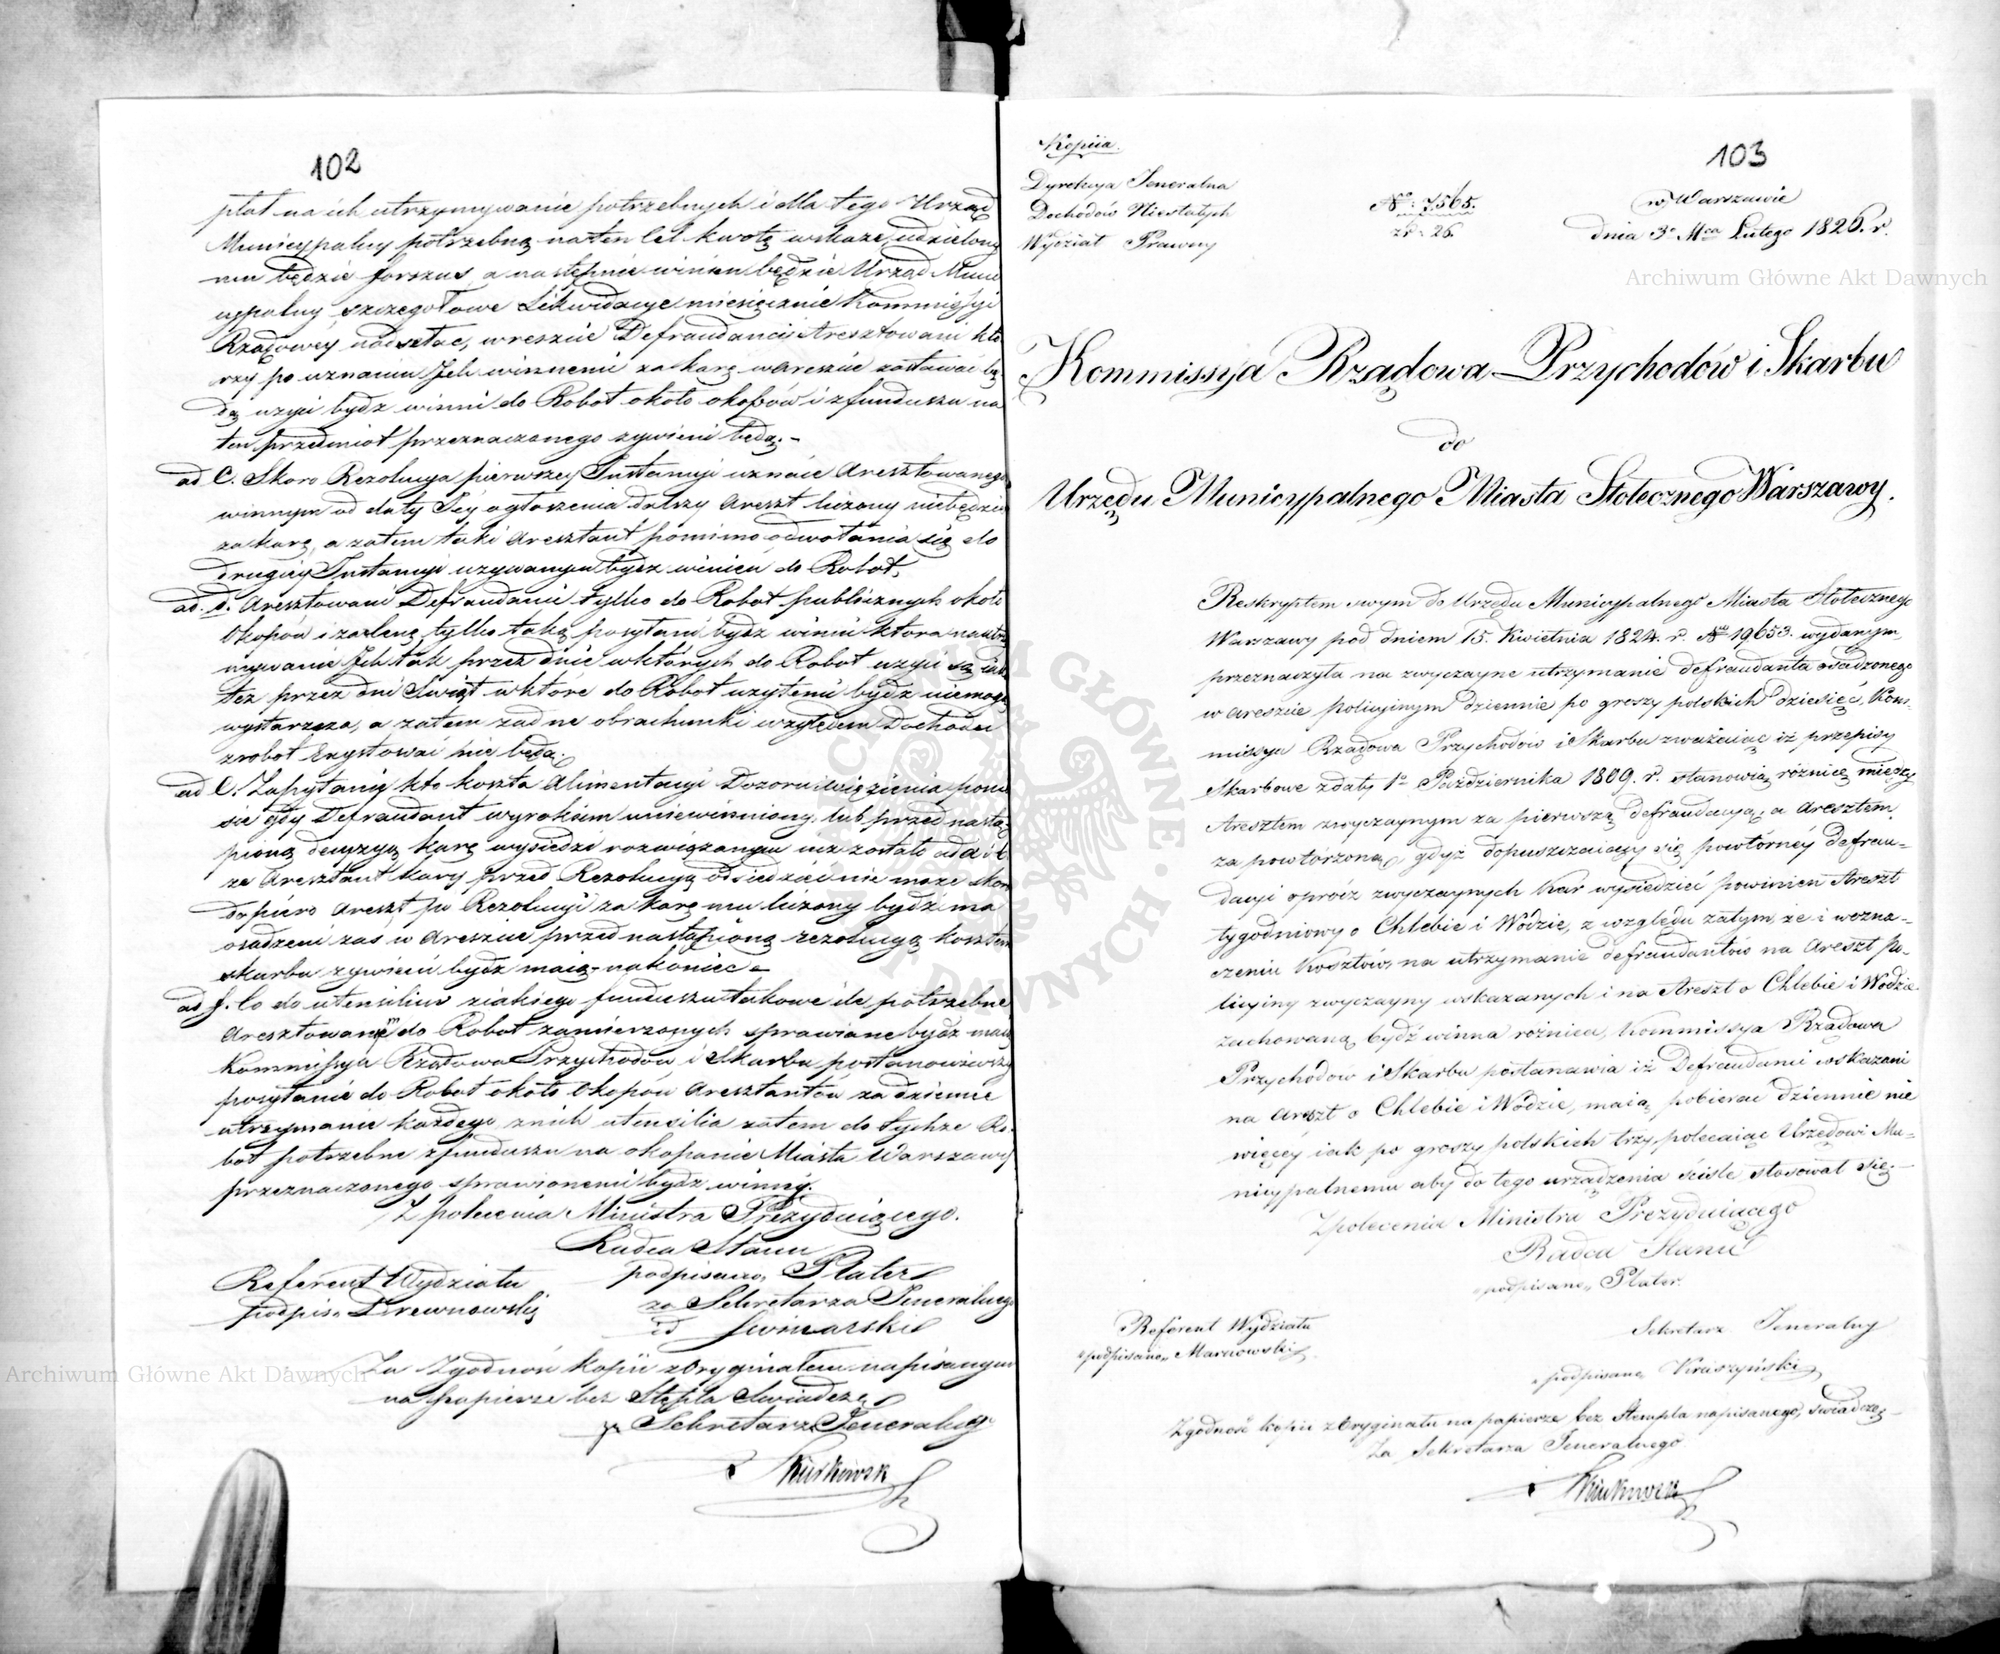 102
płat na ich utrzymywanie potrzebnych i dla tego Urząd
Municypalny potrzebną na ten cel kwotę wskaże, udzielony
mu będzie forszus, a następnie winien będzie Urząd Muni
cypalny szczegółowe Likwidacye miesięcznie Kommissyi
Rządowéy nadsełać, wreszcie Defraudanci Aresztowani któ
rzy po uznaniu Jch winnemi za karę w areszcie zostawać bę
dą użyci bydź winni do Robot około okopów i z funduszu na
ten przedmiot przeznaczonego żywieni będą.-
ad C. Skoro Rezolucya pierwszey Instancyi uznaie Aresztowanego
winnym od daty Jéy ogłoszenia dalszy Areszt liczony niebędzie
za karę, a zatem taki Aresztant pomimo odwołania się do
drugiéy Instancyi używanym bydź winien do Robot.
ad. d. Aresztowani Defraudanci tylko do Robot publicznych około
Okopów i za cenę tylko taką posyłani bydź winni która na utrzy
mywanie Jch tak przez dnie w których do Robot użyci są iak
też przez dni Swiąt w które do Robot użytemi bydź niemogą
wystarcza, a zatem żadne obrachunki względem Dochodu
z robot Exystować nie będą.
ad e. Zapytanie kto koszta Alimentacyi Dozoru więzienia ponie
sie gdy Defraudant wyrokiem uniewinniony lub przed nastą
pioną decyzyą karę wysiedzi rozwiązanym iuż zostało ad a i c
że Aresztant kary przed Rezolucyą odsiedzieć nie może skoro
dopiéro areszt po Rezolucyi za karę mu liczony bydź ma
osadzeni zaś w Areszcie przed nastąpioną rezolucyą kosztem
skarbu żywieni bydź maią - nakoniec -
ad f. Co do utensiliów z iakiego funduszu takowe do potrzebne
Aresztowanym do Robot zamierzonych sprawiane bydź maią
Kommissya Rządowa Przychodów i Skarbu postanowiwszy
posyłanie do Robot około Okopów Aresztantów za dzienne
utrzymanie każdego z nich utensilia zatem do tychże Ro-
bot potrzebne z funduszu na okopanie Miasta Warszawy
przeznaczonego sprawionemi bydź winny.
Z polecenia Ministra Prezyduiącego.
Radca Stanu
podpisano, Plater
Referent Wydziału
podpis. Drewnowski
za Sekretarza Jeneralnego
Za Zgodność kopii z Oryginałem napisanym
na papierze bez Stępla Swiadczę
Sekretarz Jeneralny
103
Kopiia.
Dyrekcya Jeneralna
Dochodów Niestałych
Wydział Prawny
w Warszawie
dnia 3o Mca Lutego 1826. r.
Kommissyja Rządowa Przychodów i Skarbu
do
Urzędu Municypalnego Miasta Stołecznego Warszawy.
Reskryptem swym do Urzędu Municypalnego Miasta Stołecznego
Warszawy pod dniem 15. Kwietnia 1824. r. No 19653. wydanym,
przeznaczyła na zwyczayne utrzymanie defraudanta osadzonego
w areszcie policyinym dziennie po groszy polskich dziesięć, Kom-
missya Rządowa Przychodów i Skarbu zważaiąc iż przepisy
Skarbowe z daty 1o Października 1809. r. stanowią różnicę między
Aresztem zwyczaynym za pierwszą defraudacyą, a Aresztem,
za powtórzoną, gdyż dopuszczaiący się powtórnéy defrau-
dacyi oprócz zwyczaynych kar wysiedzieć powinien Areszt
tygodniowy o Chlebie i Wodzie, z względu zatym, że i w ozna-
czeniu kosztów, na utrzymanie defraudantów na Areszt po-
licyiny zwyczayny wskazanych i na Areszt o Chlebie i Wodzie
zachowaną bydź winna różnica, Kommissya Rządowa
Przychodów i Skarbu postanawia iż Defraudanci wskazani
na Areszt o Chlebie i Wodzie, maią pobierać dziennie nie
więcéy iak po groszy polskich trzy, polecaiąc Urzędowi Mu-
nicypalnemu aby do tego urządzenia ściśle stosował się.-
Z polecenia Ministra Prezyduiącego
Radca Stanu
podpisano, Plater.
Referent Wydziału
podpisano, Marciowski
Sekretarz Jeneralny
podpisano, Kraszyński
Zgodność kopii z Oryginału na papierze bez Stempla napisanego, świadczę-
Za Sekretarza Jeneralnego
Archiwum Główne Akt Dawnych
Archiwum Główne Akt Dawnych
ARCHIWUM GŁÓWNE AKT DAWNYCH